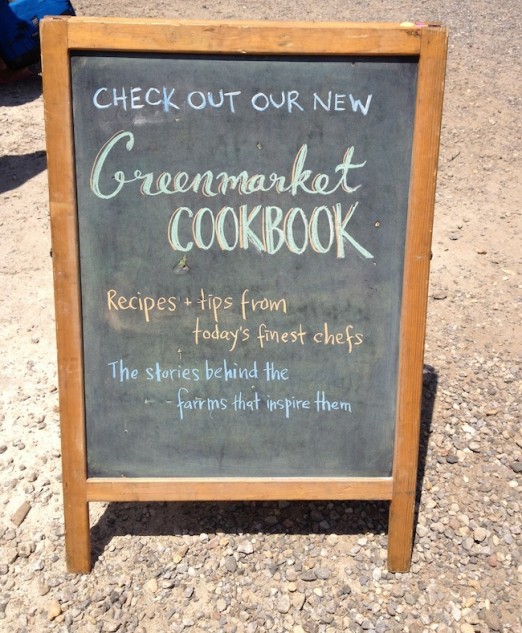 CHECK OUT OUR NEW
Greenmarket
COOKBOOK
Recipes + tips from
today's finest chefs
The stories behind the
farms that inspire them